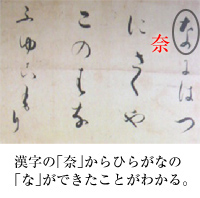 なにはつ
奈
にさくや
このはな
ふゆこもり
漢字の「奈」からひらがなの
「な」ができたことがわかる。